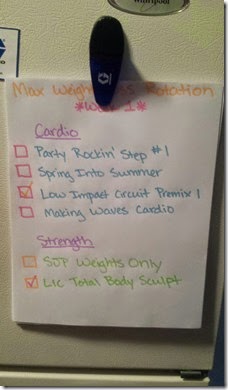 Whirlpool
Max Weight Loss Rotation
*Week 1*
Cardio
Party Rockin' Step #1
Spring Into Summer
Low Impact Circuit Premix 1
Making Waves Cardio
Strength
SJP Weights Only
LIC Total Body Sculpt